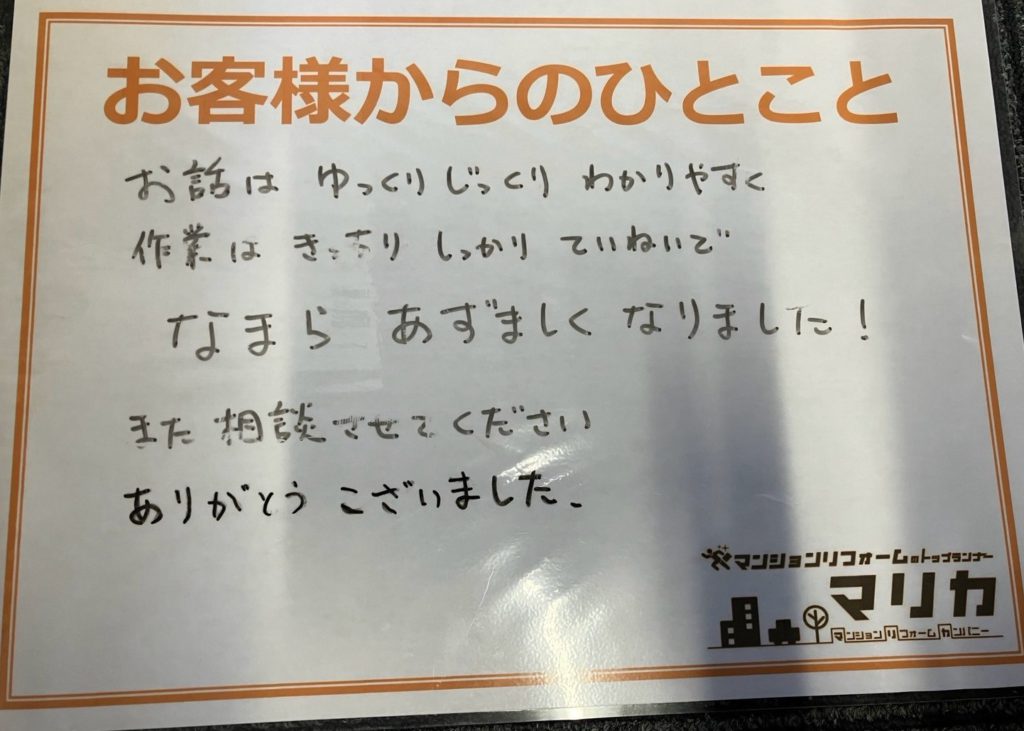 お客様からのひとこと
お話は ゆっくりじっくり わかりやすく
作業は きっちり しっかり ていねいで
なまら あずましく なりました!
また 相談させてください
ありがとう ございました。
マンションリフォームのトップランナー
マリカ
マンションリフォームカンパニー